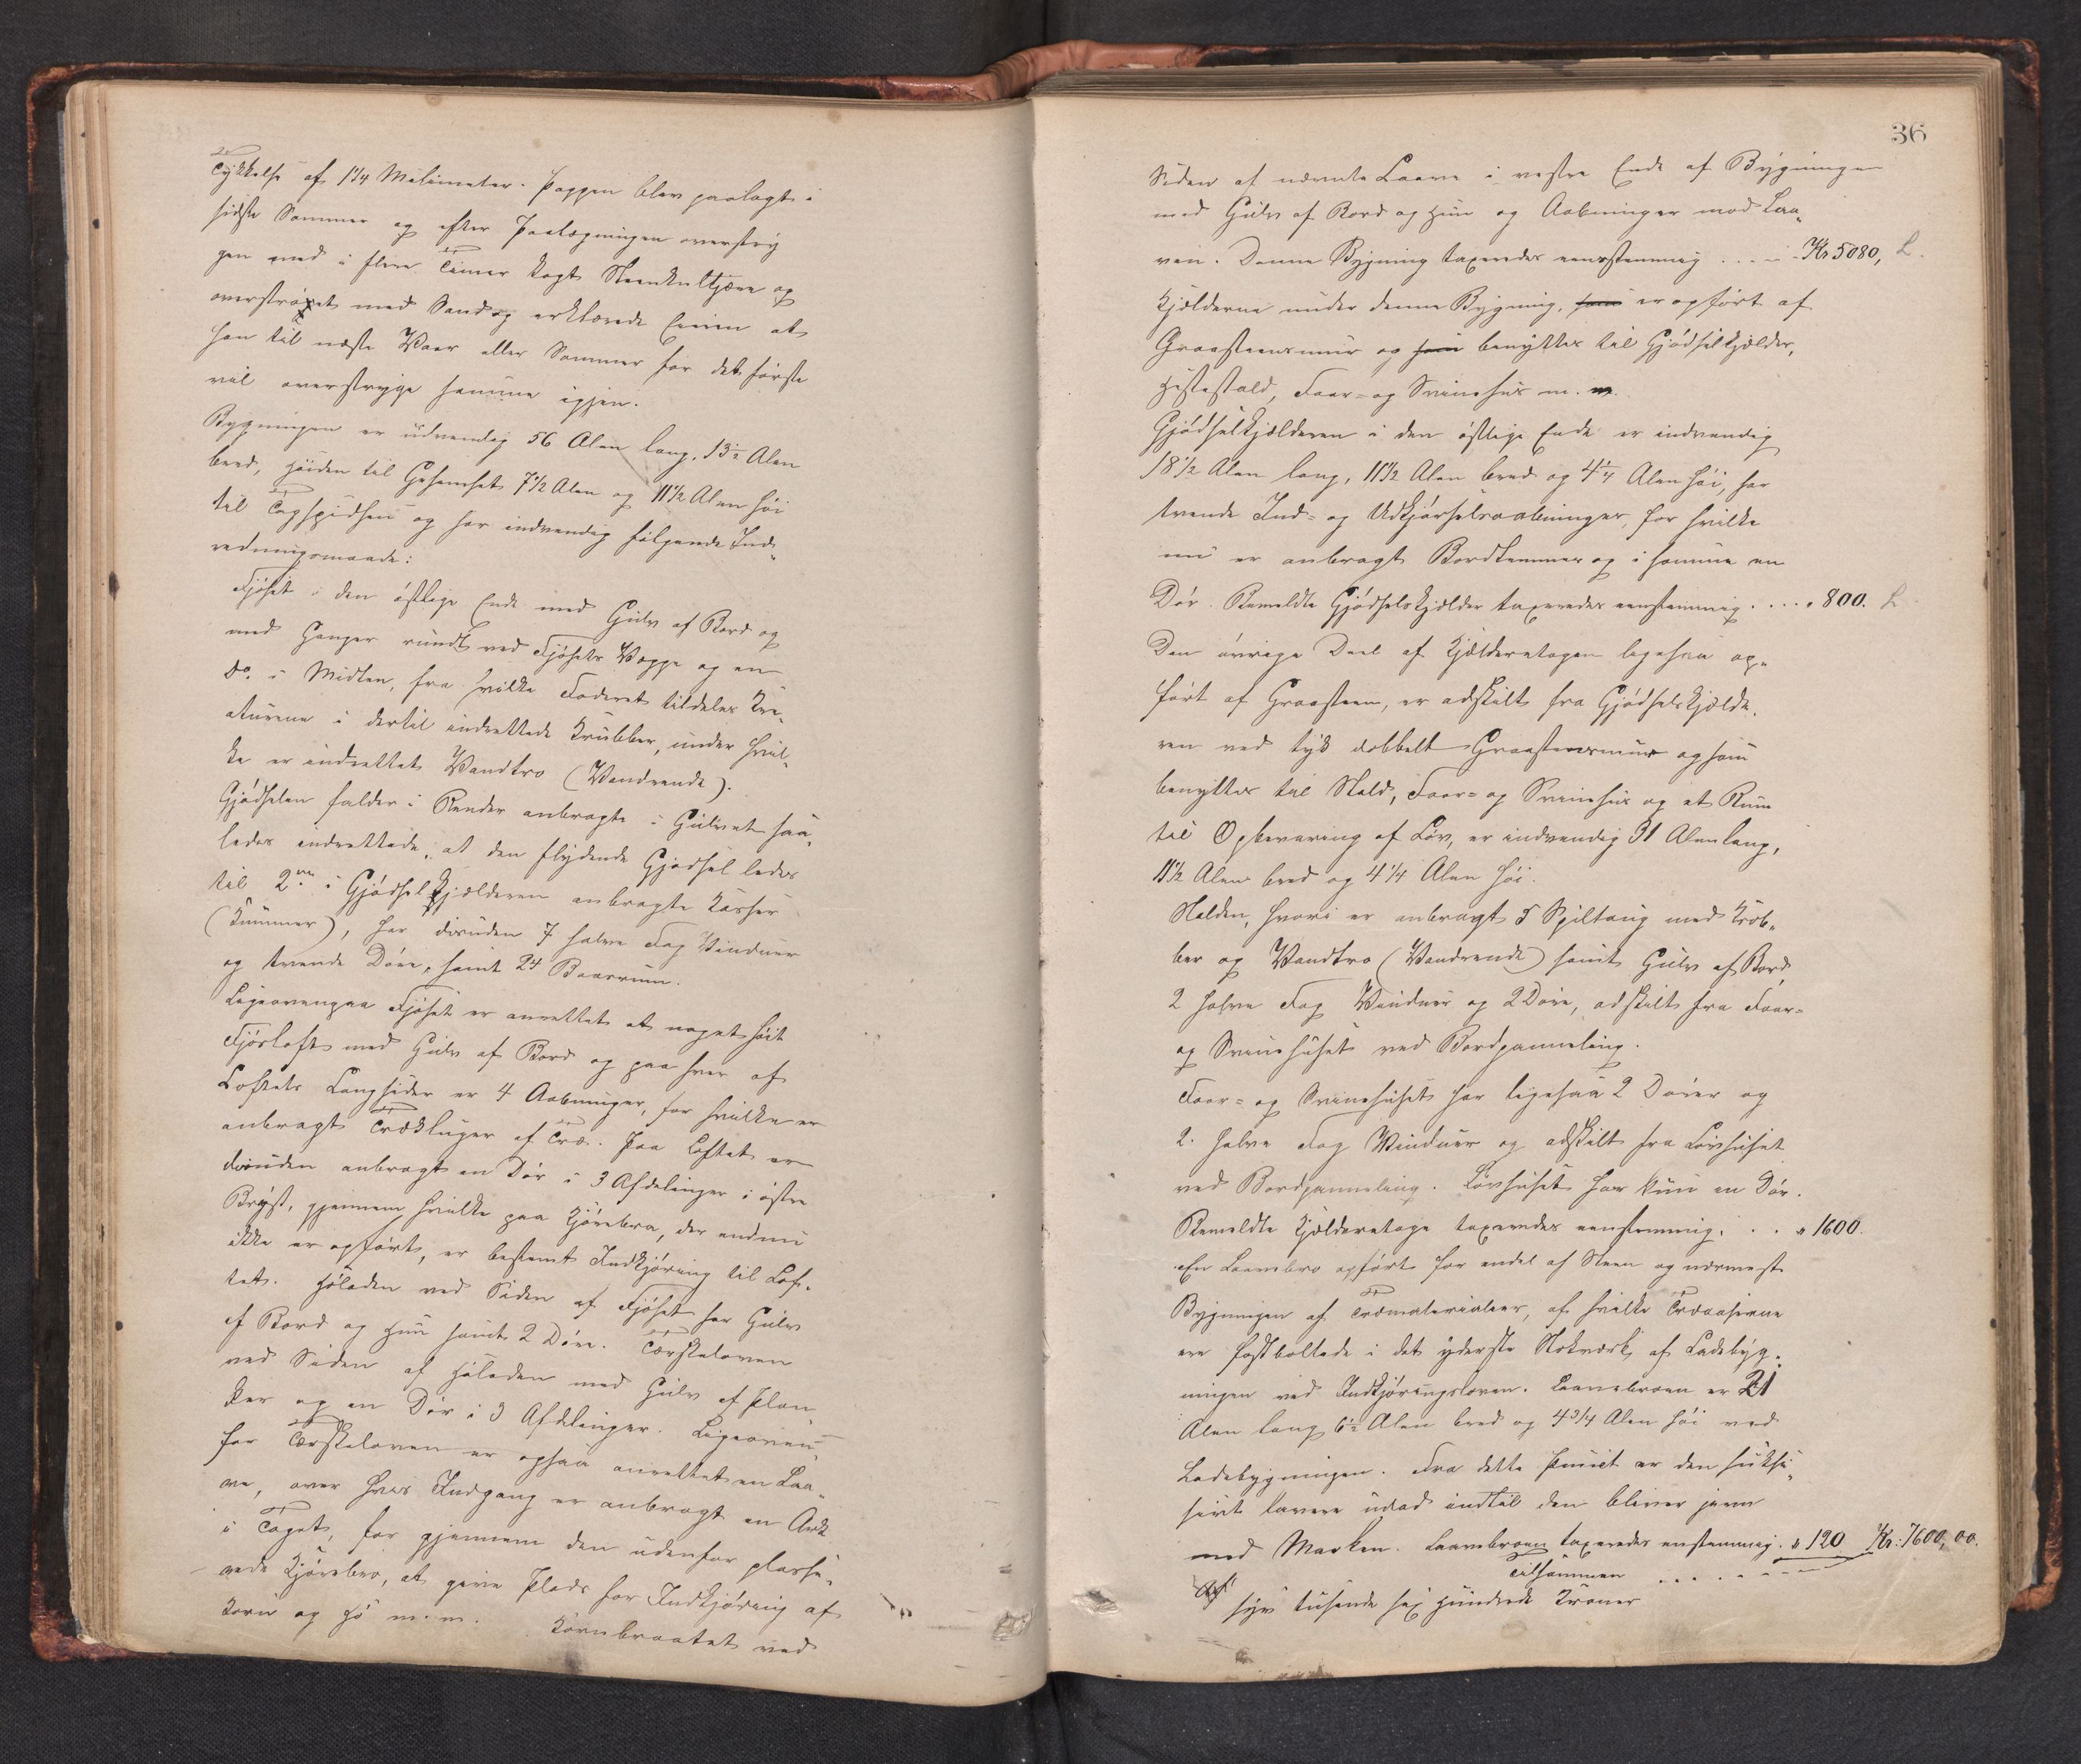 Tykkelse af 1¾ Milimeter. Pappen blev paalagt i
sidste Sommer og efter Paalægningen overstrø-
gen med i flere Timer kogt Steenkultjære og
overstrøet med Sand og erklærede Eieren at
han til næste Vaar eller Sommer for det første
vil overstryge samme igjen.
Bygningen er udvendig 56 Alen lang, 13½ Alen
bred, Høiden til Gesemset 7½ Alen og 11½ Alen høi
til Tagspidsen og har indvendig følgende Ind-
redningsmaade:
Fjøset i den østlige Ende med Gulv af Bord og
med Ganger rundt ved Fjøsets Vægge og en
do. i Midten, fra hvilke Foderet tildeles Kre-
aturene i dertil indrettede Krubber, under hvil-
ke er indrettet Vandtro (Vandrende).
Gjødselen falder i Render anbragte i Gulvet saa-
ledes indrettede, at den flydende Gjødsel ledes
til 2de i Gjødselkjælderen anbragte Kasser
(Kummer), har desuden 7 halve Fag Vinduer
og trende Døre, samt 24 Baasrum.
Ligeovenpaa Fjøset er anrettet et noget høit
Fjøsloft med Gulv af Bord og paa hver af
Loftets Langsider er 4 Aabninger, for hvilke er
anbragt Trækluger af Træ. Paa Loftet er
desuden anbragt en Dør i 3 Afdelinger i østre
Bryst, gjennem hvilke paa Kjørebro, der endnu
ikke er opført, er bestemt Indkjøring til Lof-
tet. Høladen ved Siden af Fjøset har Gulv
af Bord og Hun samt 2 Døre. Tærskeloven
ved Siden af Høladen med Gulv af Plan-
ker og en Dør i 3 Afdelinger. Ligeoven-
for Tærskeloven er ogsaa anrettet en Laa-
ve, over hvis Indgang er anbragt en Ark
i Taget, for gjennem den udenfor plasse-
rede Kjørebro, at give Plads for Indkjøring af
Korn og Hø m. m. Kornbraatet ved
36
Siden af nævnte Laave i vestre Ende af Bygningen
med Gulv af Bord og Hun og Aabninger mod Laa-
ven. Denne Bygning taxeredes eenstemmig .... Kr 5080,
Kjælderne under denne Bygning, som er opført af
Graasteensmur og som benyttes til Gjødselkjælder,
Hestestald, Faar- og Svinehus m. m.
Gjødselkjælderen i den østlige Ende er indvendig
18½ Alen lang, 11½ Alen bred og 4¼ Alen høi, har
tvende Ind- og Udkjørselsaabninger, for hvilke
nu er anbragt Bordlemmer og i samme en
Dør. Bemeldte Gjødselskjælder taxeredes eenstemmig .... " 800.
Den øvrige Deel af Kjælderetagen ligesaa op-
ført af Graasteen, er adskilt fra Gjødselskjælde-
ren ved tyk dobbelt Graasteensmur og som
benyttes til Stald, Faar- og Svinehus og et Rum
til Opbevaring af Løv, er indvendig 31 Alen lang,
11½ Alen bred og 4¼ Alen høi.
Stalden, hvori er anbragt 5 Spiltaug med Krub-
ber og Vandtro (Vandrende) samt Gulv af Bord
2 halve Fag Vinduer og 2 Døre, adskilt fra Faar-
og Svinehuset ved Bordpanneling.
Faar- og Svinehuset har ligesaa 2 Døre og
2. halve Fag Vinduer og adskilt fra Løvhuset
ved Bordpanneling. Løvhuset har kun en Dør.
Bemeldte Kjælderetage taxeredes eenstemmig. . . " 1600.
En Laavebro opført for endel af Steen og nærmest
Bygningen af Træmaterialier, af hvilke Træaaserne
ere fastboltede i det yderste Stokværk af Ladebyg-
ningen ved Indkjøringsloven. Laavebroen er 21
Alen lang 6½ Alen bred og 4¾ Alen høi ved
Ladebygningen. Fra dette Punct er den sukse-
sivt lavere udad indtil den bliver jevn
med Marken. Laavebroen taxeredes eenstemmig. " 120 Kr: 7600,00.
Tilsammen . . . . . . .
syv tusinde sex Hundrede Kroner